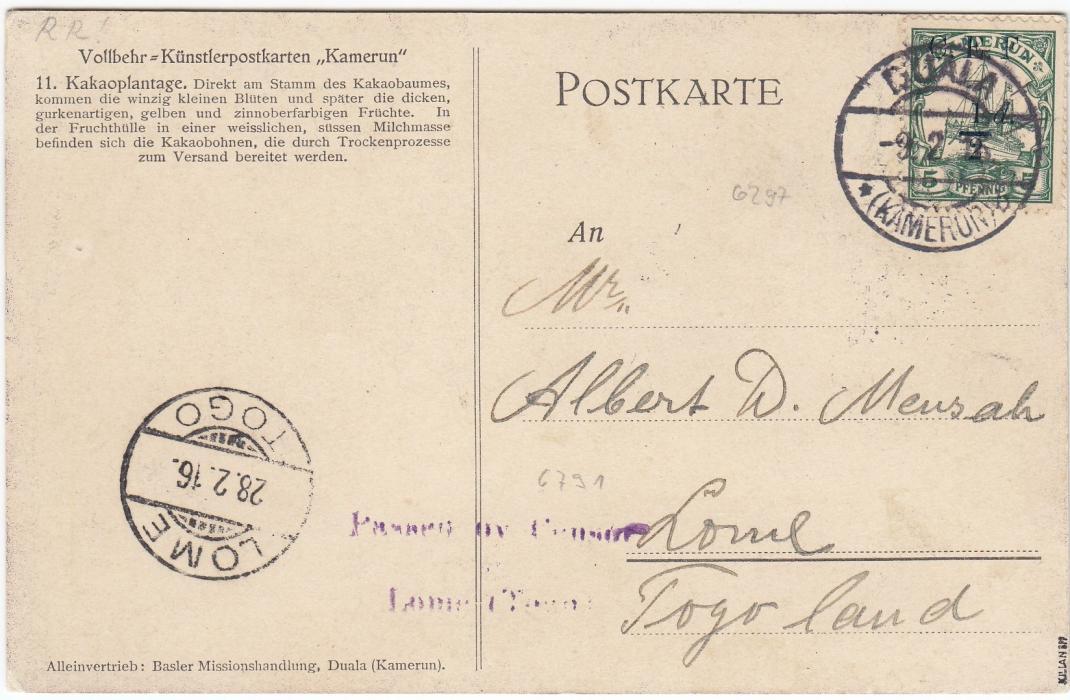 R R!
Vollbehr=Künstlerpostkarten „Kamerun"
11. Kakaoplantage. Direkt am Stamm des Kakaobaumes,
kommen die winzig kleinen Blüten und später die dicken,
gurkenartigen, gelben und zinnoberfarbigen Früchte. In
der Fruchthülle in einer weisslichen, süssen Milchmasse
befinden sich die Kakaobohnen, die durch Trockenprozesse
zum Versand bereitet werden.
POSTKARTE
C. E. F.
KAMERUN
1/2 d.
5 PFENNIG 5
DUALA
-9. 2. 16
* (KAMERUN) b
6297
An
Mr.
Albert D. Mensah
6791
Lome
Togo land
TOGO
28.2.16.
LOME
Passed by Censor
Lome (Togo)
Alleinvertrieb: Basler Missionshandlung, Duala (Kamerun).